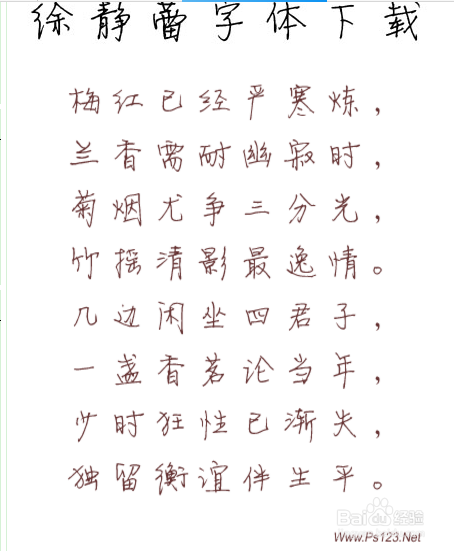 徐静蕾字体下载
梅红已经严寒炼，
兰香需耐幽寂时，
菊烟尤争三分光，
竹摇清影最逸情。
几边闲坐四君子，
一盏香茗论当年，
少时狂性已渐失，
独留衡谊伴生平。
Baidu经验
www.Ps123.Net